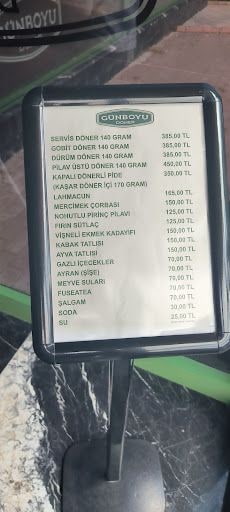 GÜNBOYU
GÜNBOYU
DÖNER
SERVİS DÖNER 140 GRAM 385,00 TL
GOBİT DÖNER 140 GRAM 385,00 TL
DÜRÜM DÖNER 140 GRAM 385,00 TL
PİLAV ÜSTÜ DÖNER 140 GRAM 450,00 TL
KAPALI DÖNERLİ PİDE 350,00 TL
(KAŞAR DÖNER İÇİ 170 GRAM)
LAHMACUN 165,00 TL
MERCİMEK ÇORBASI 150,00 TL
NOHUTLU PİRİNÇ PİLAVI 125,00 TL
FIRIN SÜTLAÇ 125,00 TL
VİŞNELİ EKMEK KADAYIFI 150,00 TL
KABAK TATLISI 150,00 TL
AYVA TATLISI 150,00 TL
GAZLI İÇECEKLER 70,00 TL
AYRAN (ŞİŞE) 70,00 TL
MEYVE SULARI 70,00 TL
FUSEATEA 70,00 TL
ŞALGAM 70,00 TL
SODA 30,00 TL
SU 25,00 TL